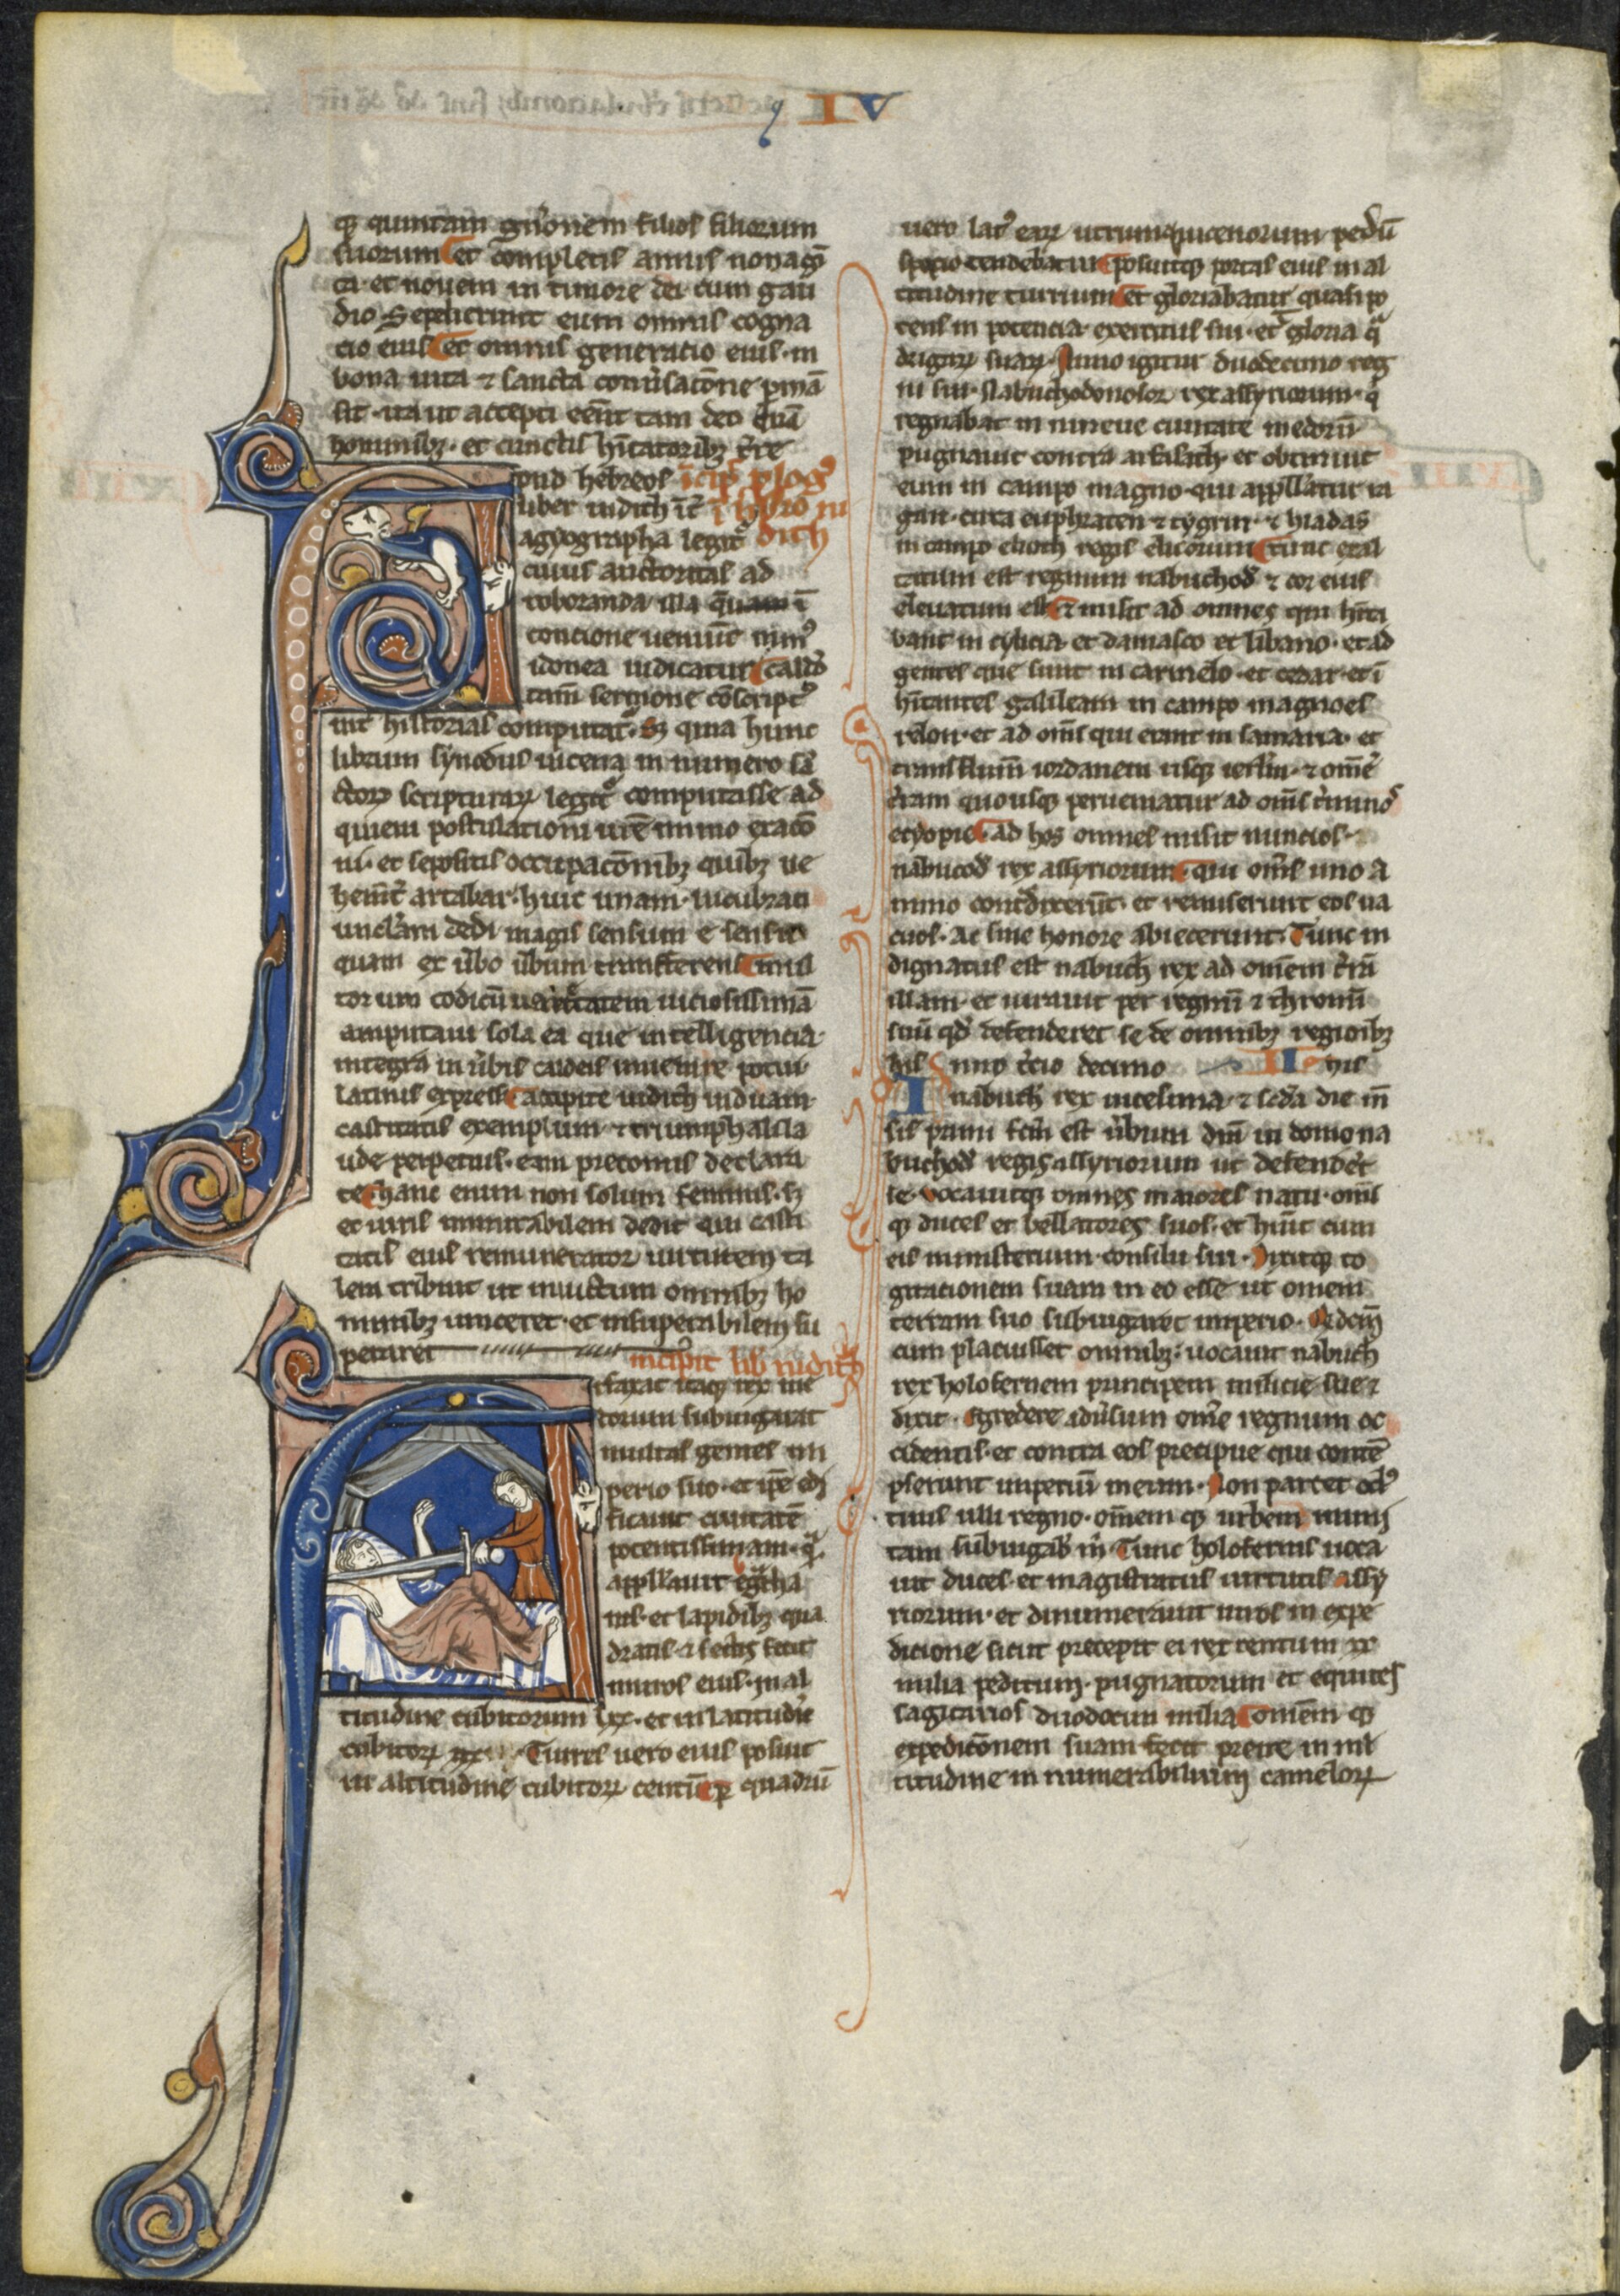 IV
q quintam gn̄onem filios filiorum
suorum et completis annis nonagī
ta et novem in timore dei cum gau
dio Sepelierunt eum omnis cogna
cio eius et omnis generatio eius in
bona uita ⁊ sancta conv̄satōne p̄mā
sit ita ut accepti eēnt tam deo quā
hominibꝫ et cunctis hītatoribꝫ t̄re
pud hebreos īcip̄ plog
liber iudith īt̄ ī libro iu
agyographa legit̄ dith
cuius auctoritas ad
roboranda illa
concione ueniūt minꝰ
idonea iudicatur caldeo
tam̄ sermone cōscriptꝰ
int̄ historias computat̄ Sꝫ quia hunc
librum synodus nicena in numero sc̄
ctoꝝ scripturaꝝ legit̄ computasse ad
quieui postulationi ur̄e immo exactō
ni et sepositis occupacōnibꝫ quibꝫ ue
hem̄t̄ artabar huic unam lucubrati
uncl̄am dedi magis sensum e sensu
quam ex ūbo ūbum transferens mul
torum codicū uarietatem uiciosissimā
amputaui sola ea que intelligencia
integra in ūbis caldeis inuenire potui
latinis expressi accipite iudith uiduam
castitatis exemplum ⁊ triumphali la
ude perpetuis eam preconiis declara
te hanc enim non solum feminis sꝫ
et uiris imitabilem dedit qui casti
tatis eius remunerator uirtutem ta
lem tribuit ut inuictum omnibꝫ ho
minibꝫ uinceret et insuperabilem su
peraret incipit lib iudith
rfaxat itaqꝫ rex me
dorum subiugarat
multas gentes im
perio suo et ip̄e edi
ficauit ciuitatē
potentissimam q̄
appll'auit egbatha
nis et lapidibꝫ qua
dratis ⁊ sectis fecit
muros eius in al
titudine cubitorum lxx et in latitudīe
cubitoꝝ xxx Turres uero eius posuit
in altitudine cubitoꝝ centū p quadrū
uero lat̄ eaꝝ utrumqꝫ uicenorum pedū
spacio tendebatur posuitqꝫ portas eius in al
titudine turrium et gloriabatur quasi po
tens in potencia exercitus sui et gloria q̄
drigaꝝ suaꝝ Anno igitur duodecimo reg
ni sui Nabuchodonosor rex assyriorum q̄
regnabat in niniue ciuitate medorū
pugnauit contra arfaxath et obtinuit
eum in campo magno qui appll'atur ra
gau circa euphraten ⁊ tygrin ⁊ hiadas
in campo erioch regis elicorum tunc exal
tatum est regnum nabuchod̄ ⁊ cor eius
eleuatum est ⁊ misit ad omnes qui hīta
bant in cylicia et damasco et libano et ad
gentes que sunt in carmelo et cedar et ī
hītantes galileam in campo magno es
relon et ad oms̄ qui erant in samaria et
trans flum̄ iordanem usqꝫ ierlm̄ ⁊ om̄e
t̄ram quousqꝫ perueniatur ad oms̄ t̄minoˢ
ethyopie ad hos omnes misit nuncios
nabucod̄ rex assyriorum qui om̄s uno a
nimo cont̄dixerūt et remiserunt eos ua
cuos Ac sine honore abiecerunt Tunc in
dignatus est nabuch̄ rex ad omem t̄rā
illam et iurauit per regnū ⁊ thronū
suū qd̄ defenderet se de omnibꝫ regionibꝫ
his nno t̄cio decimo II
A nabuch̄ rex uicesima ⁊ scd̄a die m̄
sis primi fc̄m est ūbum dn̄i in domo na
buchod̄ regis assyriorum ut defendet̄
se vocauitqꝫ omnes maiores natu oms̄
qꝫ duces et bellatores suos et hūit cum
eis ministerium consilii sui Dixitqꝫ co
gitacionem suam in eo esse ut omem
terram suo subiugaret imperio Qd cū
cum placuisset omnibꝫ uocauit nabuch̄
rex holofernem principem milicie sue ⁊
dixit Egredere adūsum om̄e regnum oc
cidentis et contra eos precipue qui contē
pserunt imperiū meum Non parcet oclꝰ
tuus ulli regno om̄em qꝫ urbem muni
tam subiugabꝭ m̄ Tunc holofernis uoca
uit duces et magistratus uirtutis assy
riorum et dinumerauit uiros in expe
dicione sicut precepit ei rex centum xx
milia peditum pugnatorum et equites
sagittarios duodecim milia omēm qꝫ
expedicōnem suam fecit preire in ml
titudine innumerabilium camelorꝝ